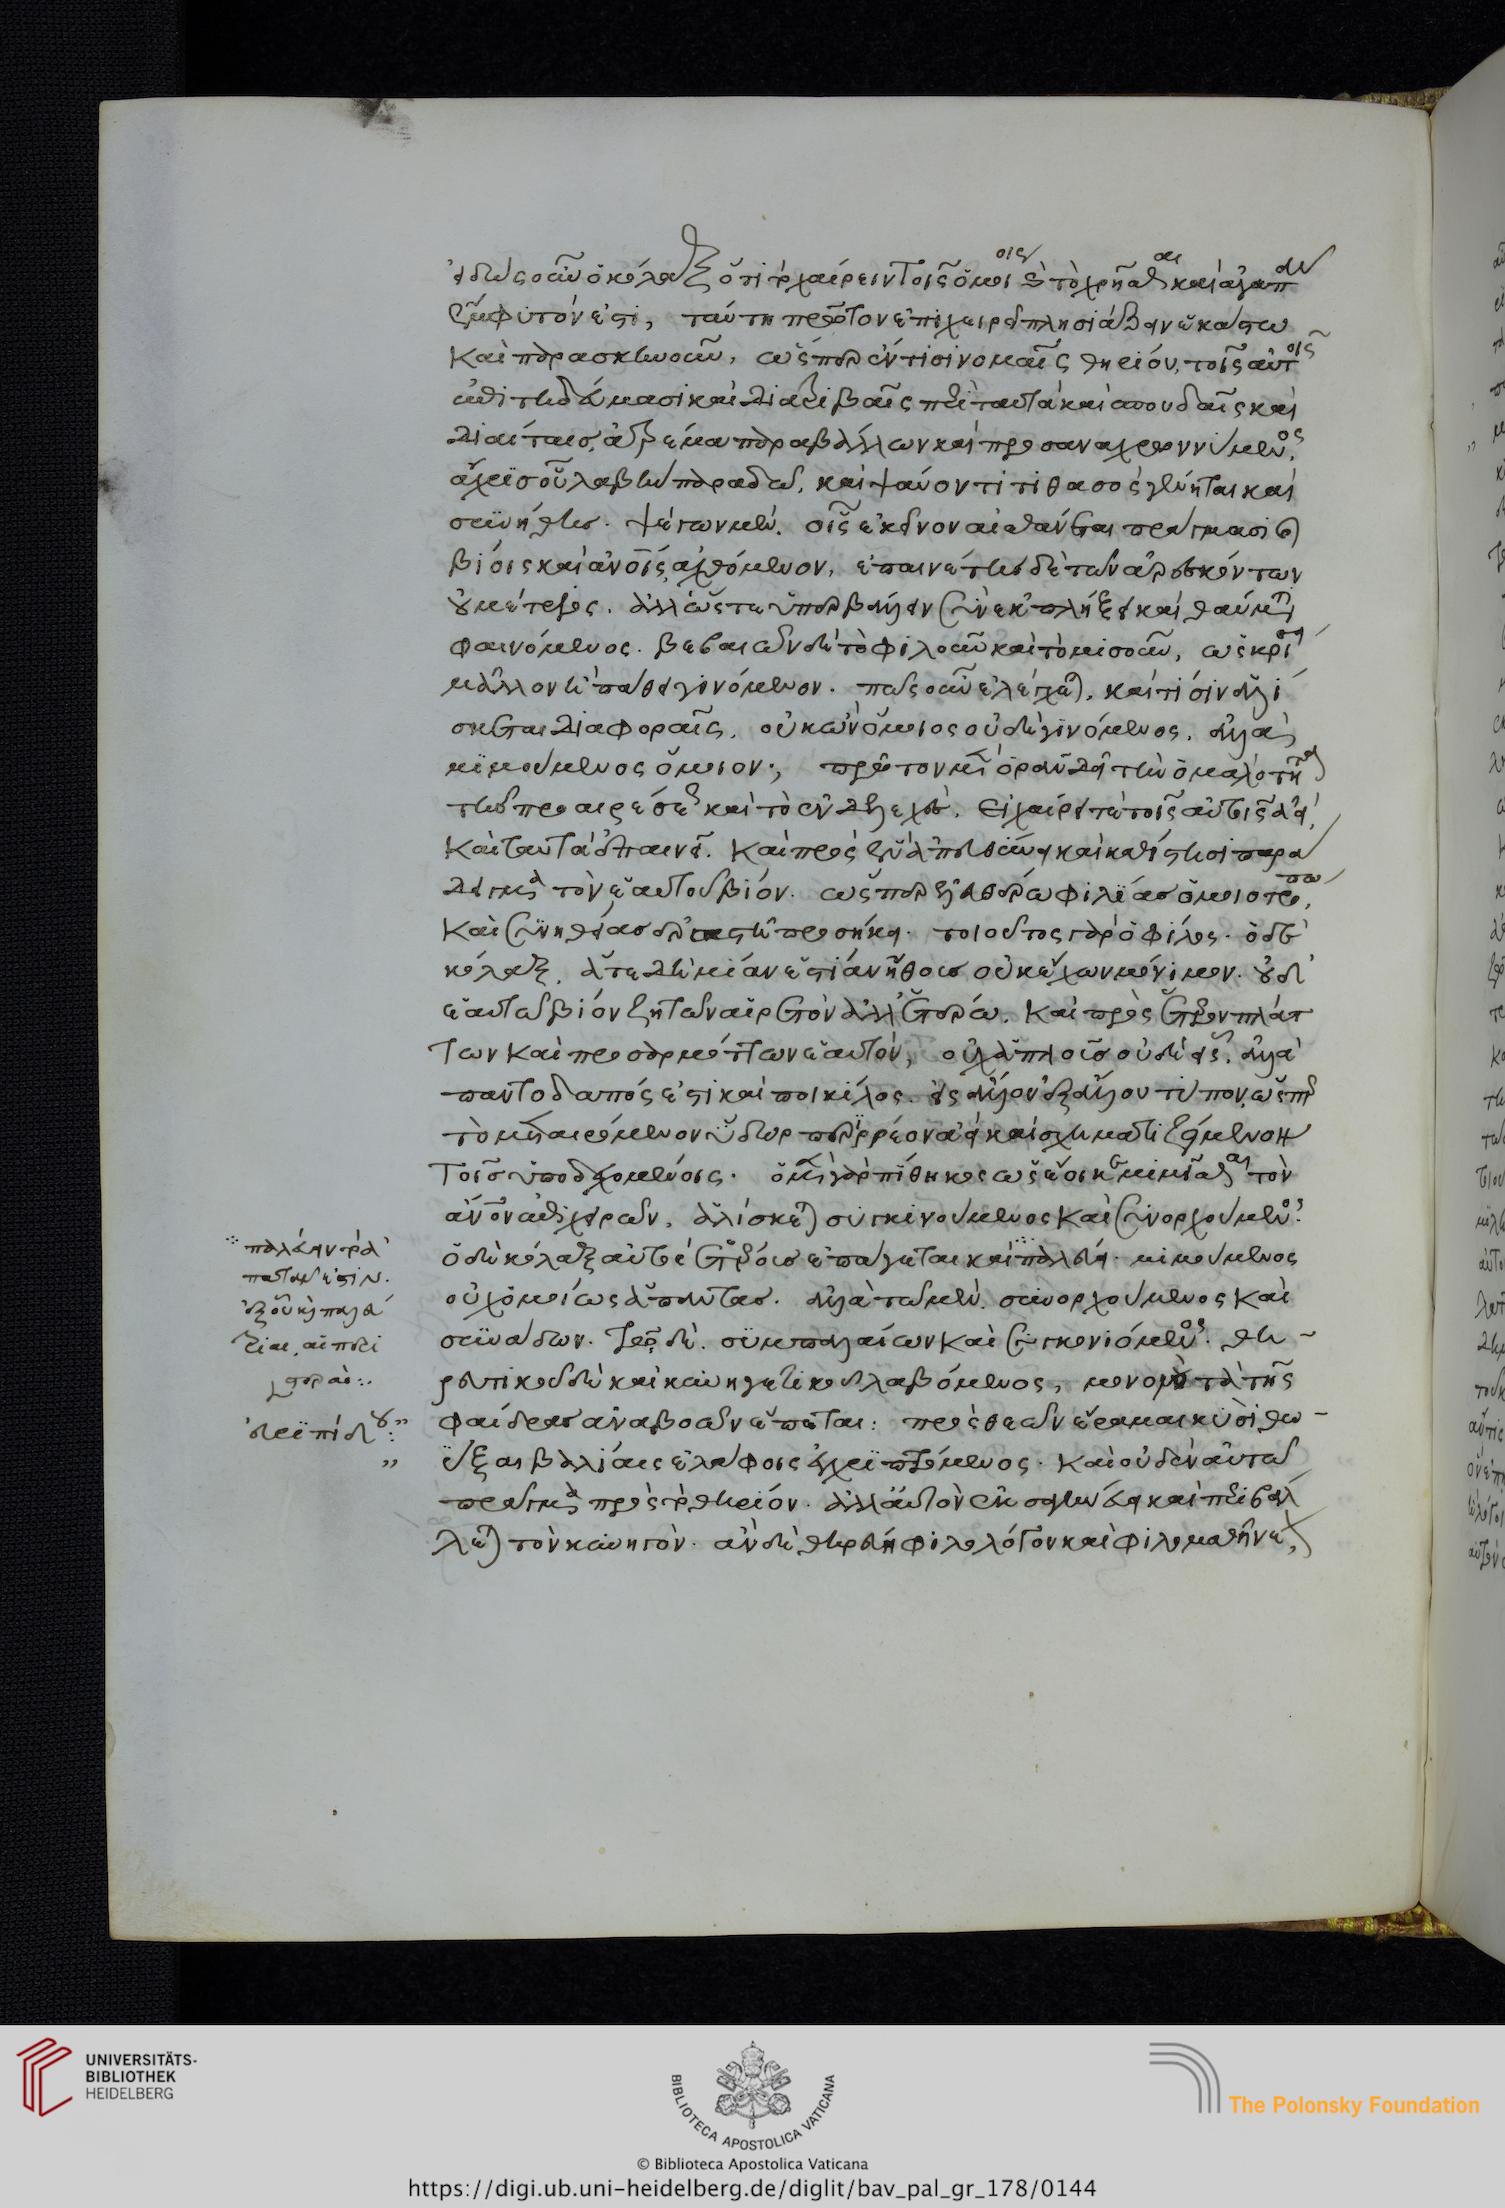 εἰδὼς οὖν ὁ κόλαξ ὅτι τὸ χαίρειν τοῖς ὁμοίοις καὶ τὸ χρῆσθαι καὶ ἀγαπᾶν
ἔμφυτόν ἐστι, ταύτῃ πρῶτον ἐπιχειρεῖ πλησιάζειν ἑκάστω
καὶ παρασκηνοῦν, ὥσπερ ἔν τισι νομαῖς θηρίου, τοῖς αὐτοῖς
ἐπιτηδεύμασι καὶ διατριβαῖς περὶ ταυτὰ καὶ σπουδαῖς καὶ
διαίταις, ἀτρέμα παραβάλλων καὶ προσαναχρωννύμενος,
ἄχρις οὗ λαβὴν παραδῶ, καὶ ψαύοντι τιθασὸς γένηται καὶ
συνήθης. ψέγων μὲν, οἷς ἐκεῖνον αἰσθάνεται πράγμασι καὶ
βίοις καὶ ἀνοις ἀχθόμενον, ἐπαινέτης δὲ τῶν ἀρεσκόντων
οὐ μέτριος. ἀλλ' ὥστε ὑπερβάλλειν σὺν ἐκπλήξει καὶ θαύματι
φαινόμενος. βεβαιῶν δὲ τὸ φιλοῦν καὶ τὸ μισοῦν, ὡς κρίσει
μᾶλλον ἢ πάθει γινόμενον. πῶς οὖν ἐλέγχεται, καὶ τίσιν ἁλί
σκεται διαφοραῖς, οὐκ ὢν ὅμοιος οὐδὲ γινόμενος, ἀλλὰ
μιμούμενος ὅμοιον; πρῶτον μὲν ὁρᾶν δεῖ τὴν ὁμαλότητα
τῆς προαιρέσεως καὶ τὸ ἐνδελεχὲς. εἰ χαίρει τε τοῖς αὐτοῖς ἀεὶ,
καὶ ταυτὰ ἐπαινεῖ. καὶ πρὸς ἓν ἀπευθύνει καὶ καθίστησι παρά
δειγμα τὸν ἑαυτοῦ βίον. ὥσπερ ἐλευθέρω φιλίας ὁμοιοτρόπω,
καὶ συνηθείας ἐραστῆ προσήκει. τοιοῦτος γὰρ ὁ φίλος. ὁ δὲ
κόλαξ, ἅτε δὴ μίαν ἑστίαν ἤθους οὐκ ἔχων μόνιμον. οὐδ'
ἑαυτῶ βίον ζῆ τῶν αἱρετὸν ἀλλ' ἑτέρω. καὶ πρὸς ἕτερον πλάτ
των καὶ προσαρμόττων ἑαυτόν, οὐχ ἁπλοῦς οὐδὲ εἷς. ἀλλὰ
παντοδαπός ἐστι καὶ ποικίλος. εἰς ἄλλον ἐξ ἄλλου τύπον, ὥσπερ
τὸ μεταιρόμενον ὕδωρ περιρρέον ἀεὶ καὶ σχηματιζόμενον
τοῖς ὑποδεχομένοις. ὁ μὲν γὰρ πίθηκος ὡς ἔοικε μιμεῖσθαι τὸν
ἄνον ἐπιχειρῶν, ἁλίσκεται συγκινούμενος καὶ συνορχούμενος.
ὁ δὲ κόλαξ αὐτὸς ἑτέρους ἐπάγεται καὶ παλεύει. μιμούμενος
οὐχ ὁμοίως ἅπαντας. ἀλλὰ τῶ μὲν, συνορχούμενος καὶ
συνάδων. τῶ δὲ, συμπαλαίων καὶ συγκονιόμενος. θη-
ρευτικοῦ δὲ καὶ κυνηγετικοῦ λαβόμενος, μονονοὺ τὰ τῆς
φαίδρας ἀναβοῶν ἕπεται: πρὸς θεῶν ἔραμαι κυσὶ θω-
ΰξαι βαλιαῖς ἐλάφοις ἐγχριπτόμενος. καὶ οὐδὲν αὐτῶ
πρᾶγμα πρὸς τὸ θηρίον. ἀλλ' αὐτὸν ἐκσαγηνεύει καὶ περιβάλ
λεται τὸν κυνηγόν. ἂν δὲ θηρεύη φιλόλογον καὶ φιλομαθῆ νέον,
ὐριπίδου
UNIVERSITÄTS-
BIBLIOTHEK
HEIDELBERG
BIBLIOTECA APOSTOLICA VATICANA
© Biblioteca Apostolica Vaticana
The Polonsky Foundation
https://digi.ub.uni-heidelberg.de/diglit/bav_pal_gr_178/0144